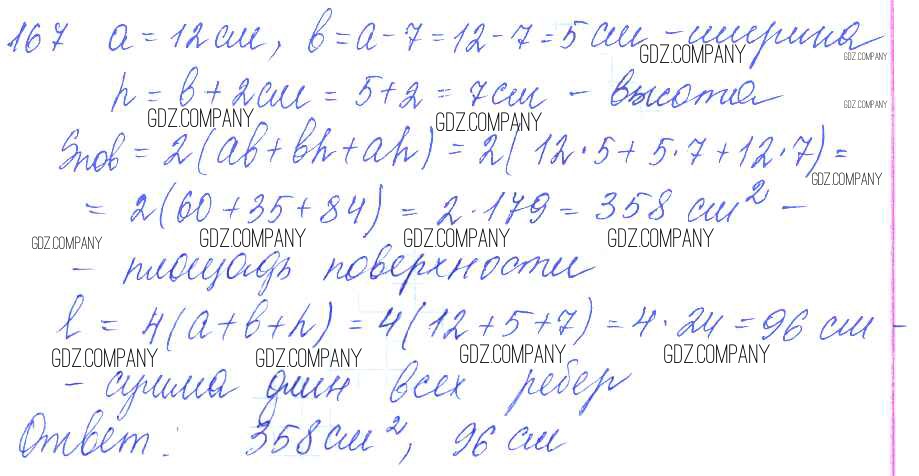 167 a = 12 см, b = a - 7 = 12 - 7 = 5 см - ширина
GDZ.COMPANY GDZ.COMPANY
h = b + 2 см = 5 + 2 = 7 см - высота
GDZ.COMPANY GDZ.COMPANY GDZ.COMPANY
Sпов = 2(ab + bh + ah) = 2(12·5 + 5·7 + 12·7) =
GDZ.COMPANY
= 2(60 + 35 + 84) = 2·179 = 358 см² -
GDZ.COMPANY GDZ.COMPANY GDZ.COMPANY GDZ.COMPANY
- площадь поверхности
l = 4(a + b + h) = 4(12 + 5 + 7) = 4·24 = 96 см -
GDZ.COMPANY GDZ.COMPANY GDZ.COMPANY GDZ.COMPANY
- сумма длин всех ребер
Ответ: 358 см², 96 см